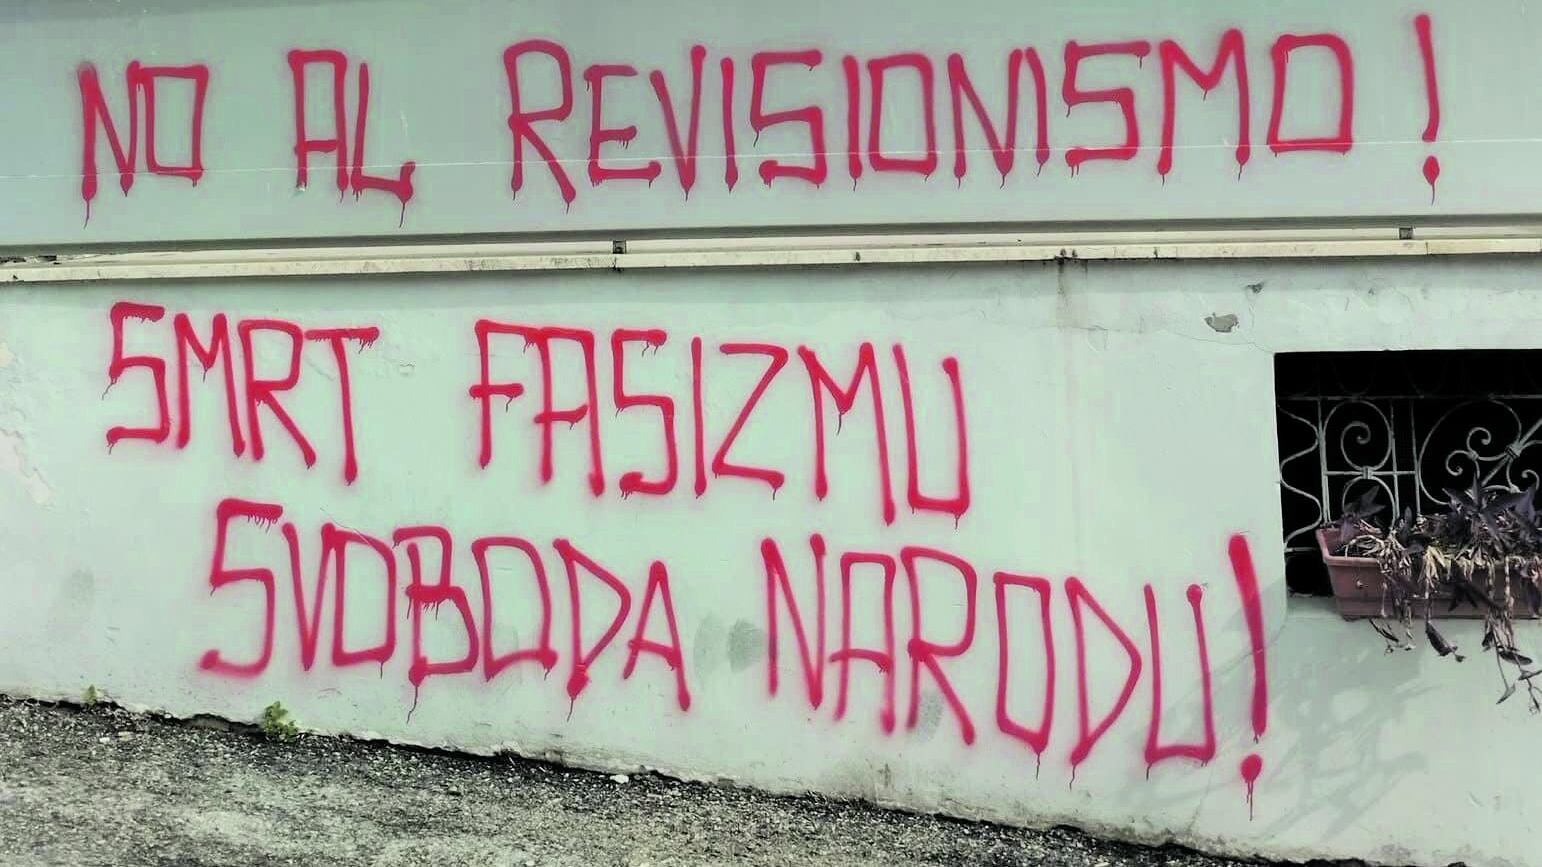 NO AL REVISIONISMO!
SMRT FASIZMU
SVOBODA NARODU!